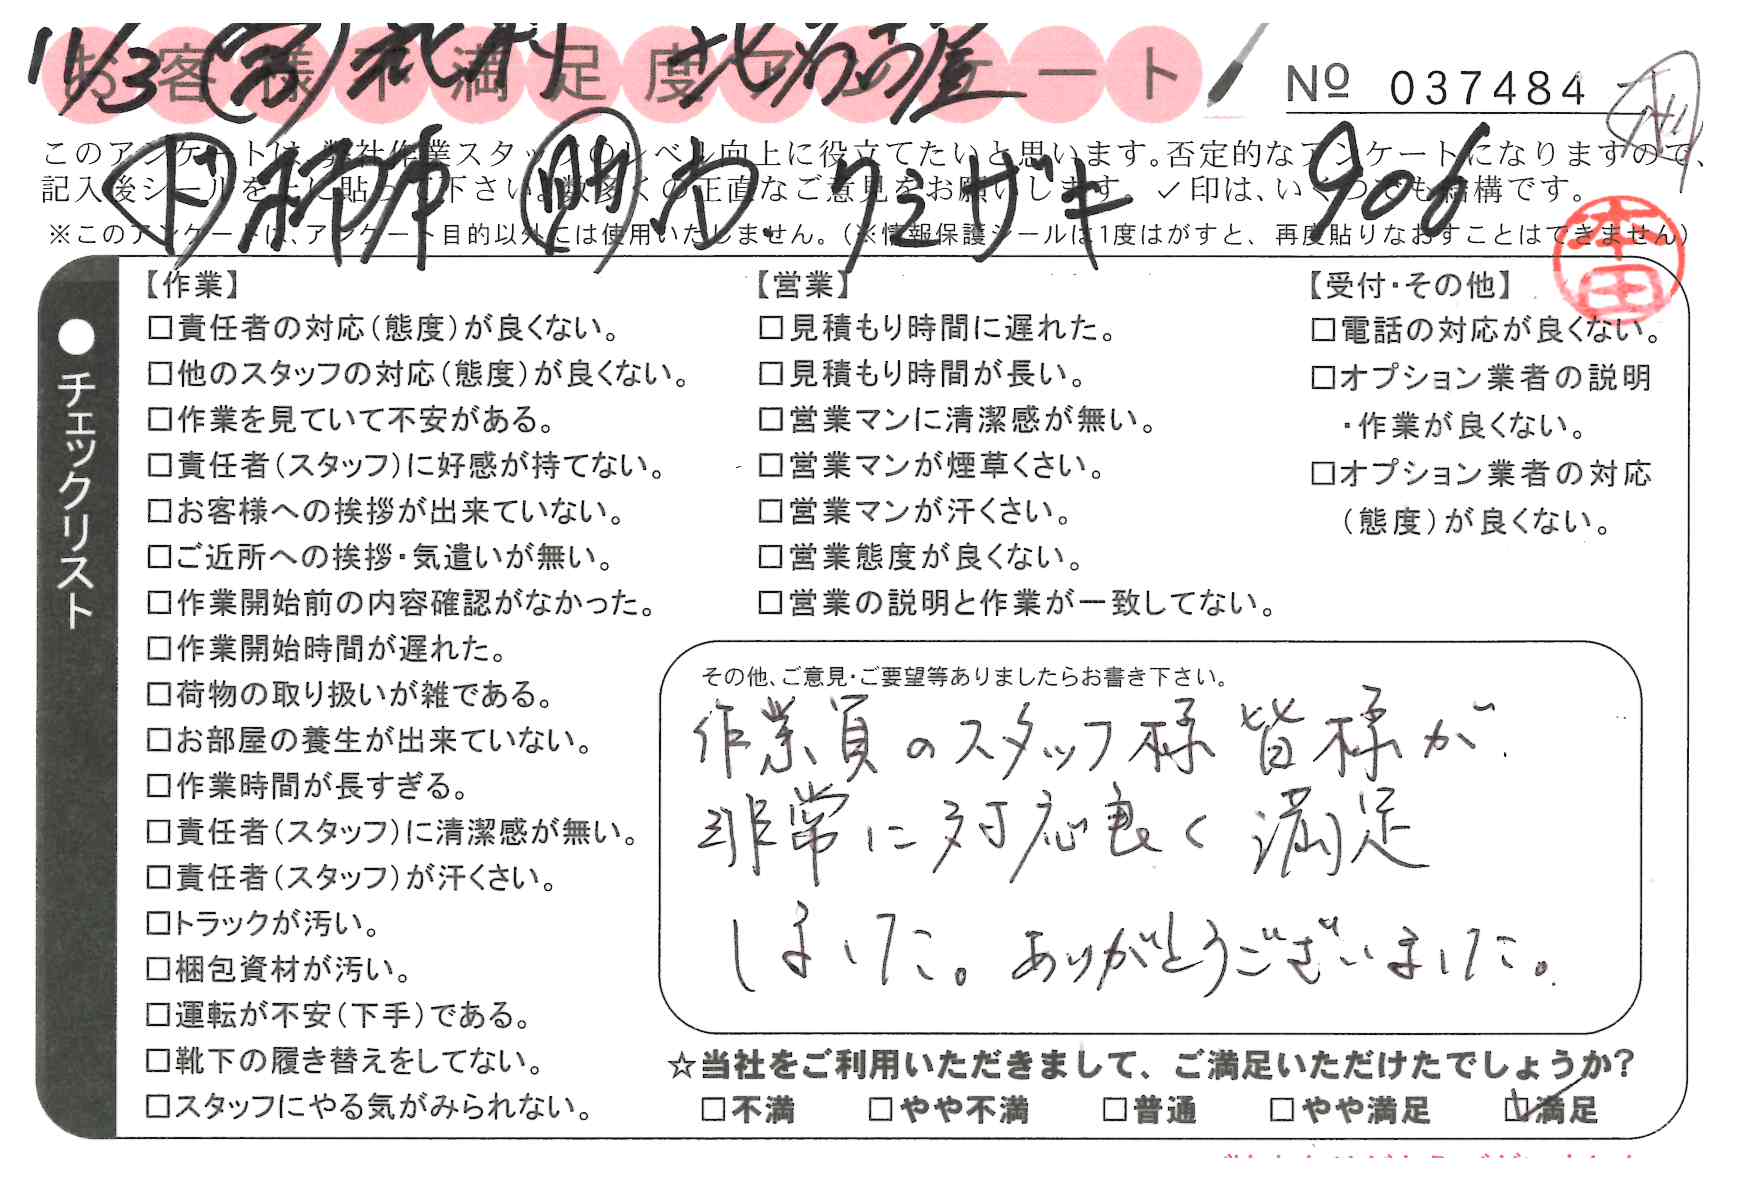 お客様不満足度アンケート
№ 037484
11/3
北名古屋
906
このアンケートは、弊社作業スタッフのレベル向上に役立てたいと思います。否定的なアンケートになりますので、
記入後シールを上に貼って下さい。数多くの正直なご意見をお願いします。✓印は、いくつでも結構です。
※このアンケートは、アンケート目的以外には使用いたしません。(※情報保護シールは1度はがすと、再度貼りなおすことはできません)
本田
●チェックリスト
【作業】
□責任者の対応(態度)が良くない。
□他のスタッフの対応(態度)が良くない。
□作業を見ていて不安がある。
□責任者(スタッフ)に好感が持てない。
□お客様への挨拶が出来ていない。
□ご近所への挨拶・気遣いが無い。
□作業開始前の内容確認がなかった。
□作業開始時間が遅れた。
□荷物の取り扱いが雑である。
□お部屋の養生が出来ていない。
□作業時間が長すぎる。
□責任者(スタッフ)に清潔感が無い。
□責任者(スタッフ)が汗くさい。
□トラックが汚い。
□梱包資材が汚い。
□運転が不安(下手)である。
□靴下の履き替えをしてない。
□スタッフにやる気がみられない。
【営業】
□見積もり時間に遅れた。
□見積もり時間が長い。
□営業マンに清潔感が無い。
□営業マンが煙草くさい。
□営業マンが汗くさい。
□営業態度が良くない。
□営業の説明と作業が一致してない。
【受付・その他】
□電話の対応が良くない。
□オプション業者の説明
・作業が良くない。
□オプション業者の対応
(態度)が良くない。
その他、ご意見・ご要望等ありましたらお書き下さい。
作業員のスタッフ様皆様が
非常に対応良く満足
しました。ありがとうございました。
☆当社をご利用いただきまして、ご満足いただけたでしょうか?
□不満 □やや不満 □普通 □やや満足 ☑満足